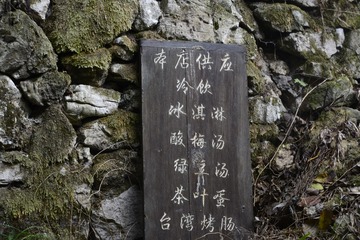 本店供应
冷饮
冰淇淋
酸梅汤
绿豆汤
茶叶蛋
台湾烤肠